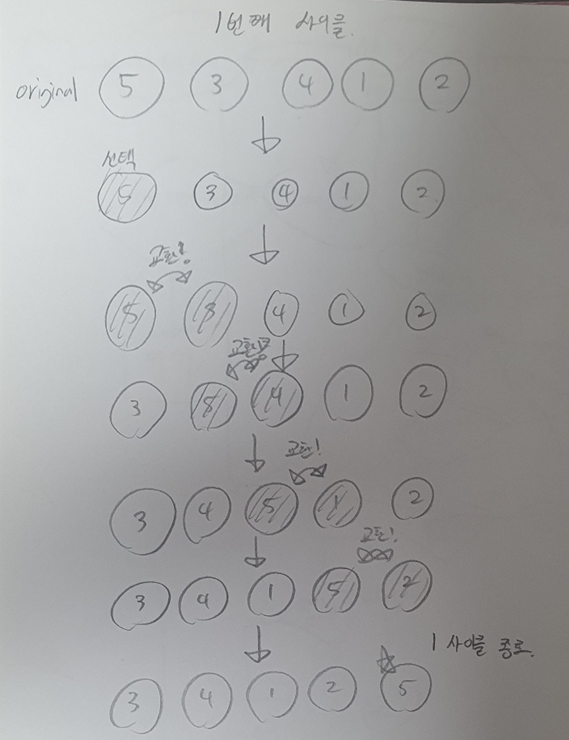 1번째 사이클.
original 5 3 4 1 2
선택
5 3 4 1 2
교환!
5 3 4 1 2
교환!
3 5 4 1 2
교환!
3 4 5 1 2
교환!
3 4 1 5 2
1 사이클 종료.
3 4 1 2 5